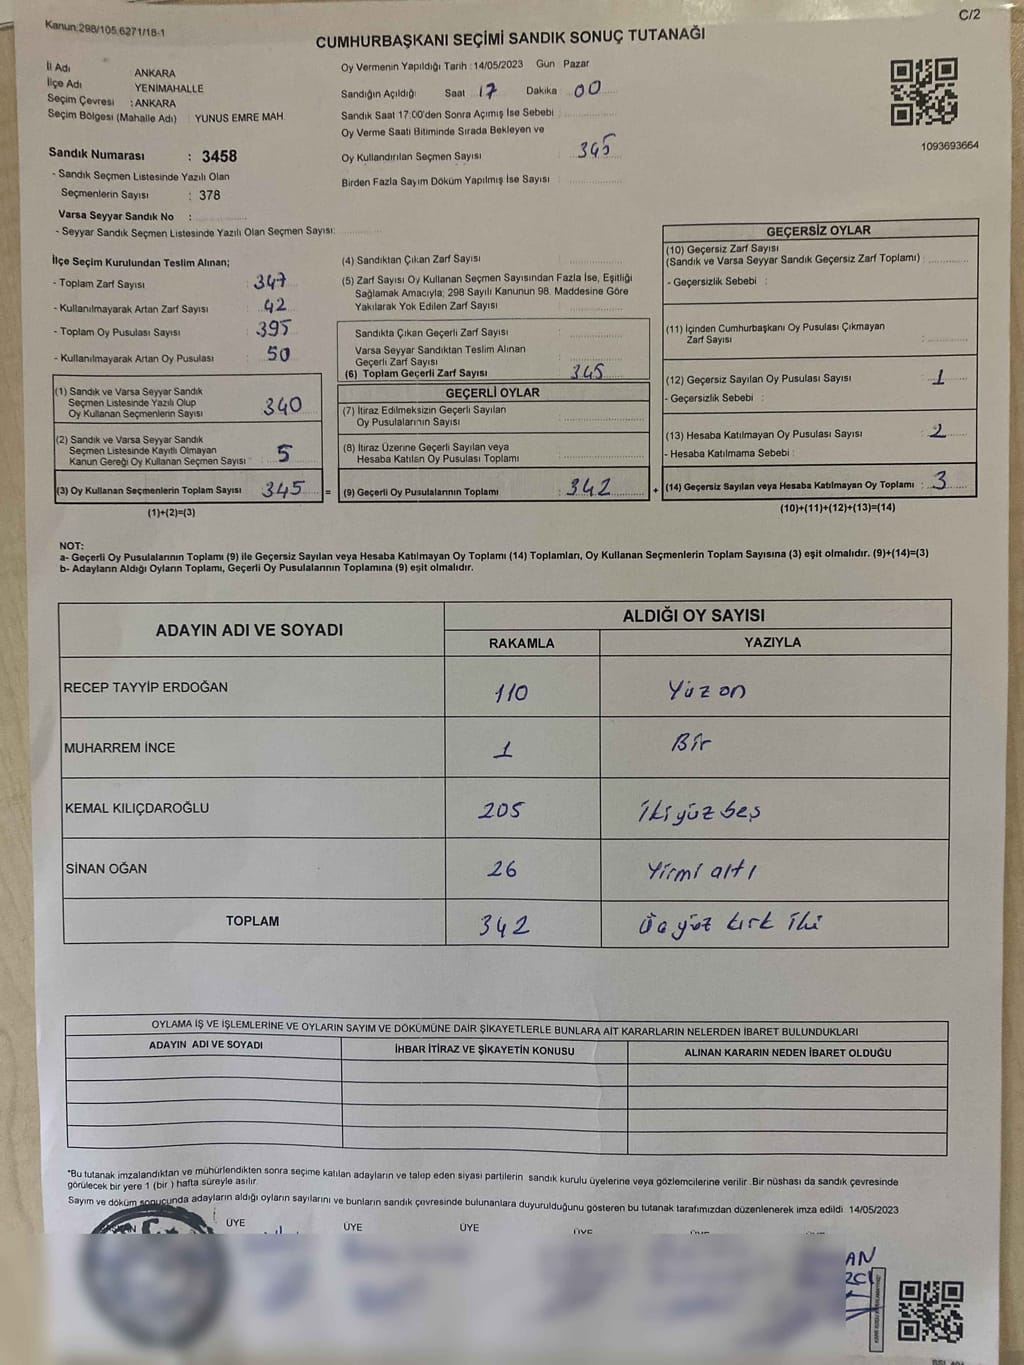 Kanun:298/105.6271/18-1
C/2
CUMHURBAŞKANI SEÇİMİ SANDIK SONUÇ TUTANAĞI
İl Adı : ANKARA
İlçe Adı YENİMAHALLE
Seçim Çevresi : ANKARA
Seçim Bölgesi (Mahalle Adı) : YUNUS EMRE MAH.
Sandık Numarası : 3458
- Sandık Seçmen Listesinde Yazılı Olan
Seçmenlerin Sayısı : 378
Varsa Seyyar Sandık No :
- Seyyar Sandık Seçmen Listesinde Yazılı Olan Seçmen Sayısı:
Oy Vermenin Yapıldığı Tarih : 14/05/2023 Gün Pazar
Sandığın Açıldığı Saat 17 Dakika 00
Sandık Saat 17:00'den Sonra Açımış İse Sebebi :
Oy Verme Saati Bitiminde Sırada Bekleyen ve
Oy Kullandırılan Seçmen Sayısı 345
Birden Fazla Sayım Döküm Yapılmış İse Sayısı :
1093693664
İlçe Seçim Kurulundan Teslim Alınan;
- Toplam Zarf Sayısı : 347
- Kullanılmayarak Artan Zarf Sayısı : 42
- Toplam Oy Pusulası Sayısı : 395
- Kullanılmayarak Artan Oy Pusulası : 50
(1) Sandık ve Varsa Seyyar Sandık
Seçmen Listesinde Yazılı Olup
Oy Kullanan Seçmenlerin Sayısı 340
(2) Sandık ve Varsa Seyyar Sandık
Seçmen Listesinde Kayıtlı Olmayan
Kanun Gereği Oy Kullanan Seçmen Sayısı 5
(3) Oy Kullanan Seçmenlerin Toplam Sayısı 345 =
(1)+(2)=(3)
(4) Sandıktan Çıkan Zarf Sayısı :
(5) Zarf Sayısı Oy Kullanan Seçmen Sayısından Fazla İse, Eşitliği
Sağlamak Amacıyla; 298 Sayılı Kanunun 98. Maddesine Göre
Yakılarak Yok Edilen Zarf Sayısı :
Sandıkta Çıkan Geçerli Zarf Sayısı :
Varsa Seyyar Sandıktan Teslim Alınan
Geçerli Zarf Sayısı :
(6) Toplam Geçerli Zarf Sayısı 345
GEÇERLİ OYLAR
(7) İtiraz Edilmeksizin Geçerli Sayılan
Oy Pusulalarının Sayısı :
(8) İtiraz Üzerine Geçerli Sayılan veya
Hesaba Katılan Oy Pusulası Toplamı :
(9) Geçerli Oy Pusulalarının Toplamı : 342 +
GEÇERSİZ OYLAR
(10) Geçersiz Zarf Sayısı
(Sandık ve Varsa Seyyar Sandık Geçersiz Zarf Toplamı) :
- Geçersizlik Sebebi :
(11) İçinden Cumhurbaşkanı Oy Pusulası Çıkmayan
Zarf Sayısı :
(12) Geçersiz Sayılan Oy Pusulası Sayısı : 1
- Geçersizlik Sebebi :
(13) Hesaba Katılmayan Oy Pusulası Sayısı : 2
- Hesaba Katılmama Sebebi :
(14) Geçersiz Sayılan veya Hesaba Katılmayan Oy Toplamı : 3
(10)+(11)+(12)+(13)=(14)
NOT:
a- Geçerli Oy Pusulalarının Toplamı (9) ile Geçersiz Sayılan veya Hesaba Katılmayan Oy Toplamı (14) Toplamları, Oy Kullanan Seçmenlerin Toplam Sayısına (3) eşit olmalıdır. (9)+(14)=(3)
b- Adayların Aldığı Oyların Toplamı, Geçerli Oy Pusulalarının Toplamına (9) eşit olmalıdır.
ADAYIN ADI VE SOYADI ALDIĞI OY SAYISI
RAKAMLA YAZIYLA
RECEP TAYYİP ERDOĞAN 110 Yüz on
MUHARREM İNCE 1 Bir
KEMAL KILIÇDAROĞLU 205 İki yüz beş
SİNAN OĞAN 26 Yirmi altı
TOPLAM 342 Üç yüz kırk iki
OYLAMA İŞ VE İŞLEMLERİNE VE OYLARIN SAYIM VE DÖKÜMÜNE DAİR ŞİKAYETLERLE BUNLARA AİT KARARLARIN NELERDEN İBARET BULUNDUKLARI
ADAYIN ADI VE SOYADI İHBAR İTİRAZ VE ŞİKAYETİN KONUSU ALINAN KARARIN NEDEN İBARET OLDUĞU
*Bu tutanak imzalandıktan ve mühürlendikten sonra seçime katılan adayların ve talep eden siyasi partilerin sandık kurulu üyelerine veya gözlemcilerine verilir .Bir nüshası da sandık çevresinde
görülecek bir yere 1 (bir ) hafta süreyle asılır.
Sayım ve döküm sonucunda adayların aldığı oyların sayılarını ve bunların sandık çevresinde bulunanlara duyurulduğunu gösteren bu tutanak tarafımızdan düzenlenerek imza edildi 14/05/2023
ÜYE ÜYE ÜYE ÜYE